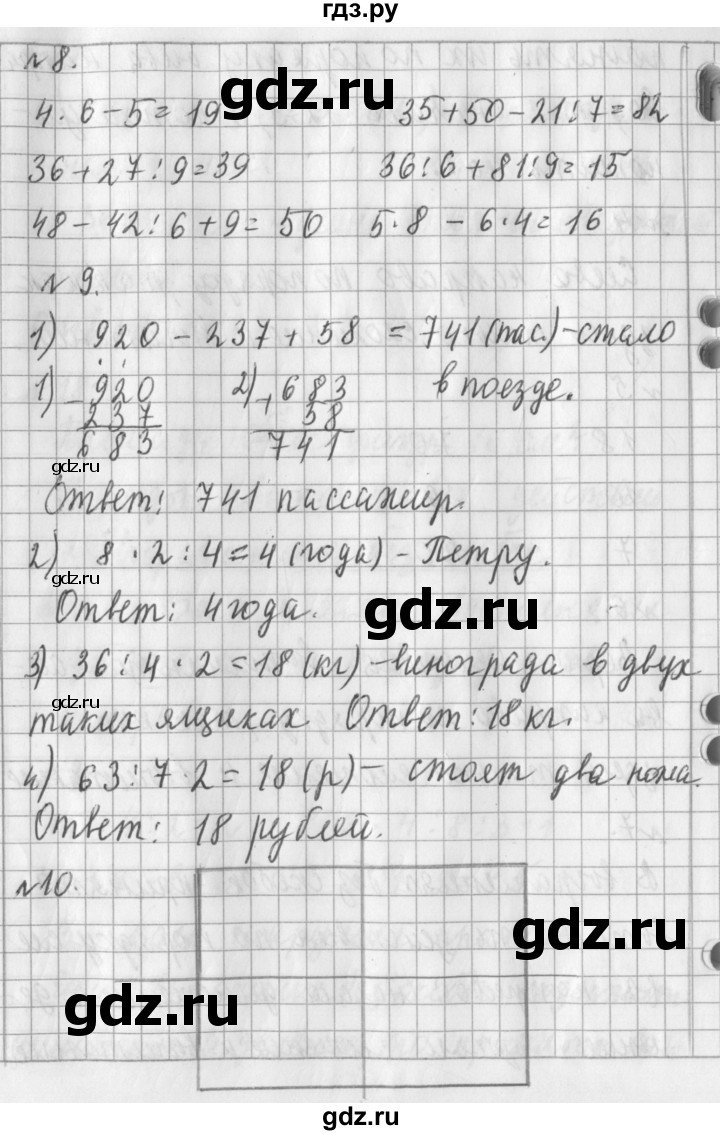 гдз.ру
№8.
4·6-5=19 35+50-21:7=82
36+27:9=39 36:6+81:9=15
48-42:6+9=50 5·8-6·4=16
№9.
1) 920-237+58=741(пас.)-стало
в поезде.
1) -920 2) +683
237 58
683 741
Ответ: 741 пассажир.
2) 8·2:4=4(года)-Петру.
Ответ: 4 года.
3) 36:4·2=18(кг)-винограда в двух
таких ящиках. Ответ: 18кг.
4) 63:7·2=18(р)- стоят два ножа.
Ответ: 18 рублей.
№10.
gdz.ru
gdz.ru
gdz.ru
gdz.ru
gdz.ru
gdz.ru
gdz.ru
gdz.ru
gdz.ru
gdz.ru
gdz.ru